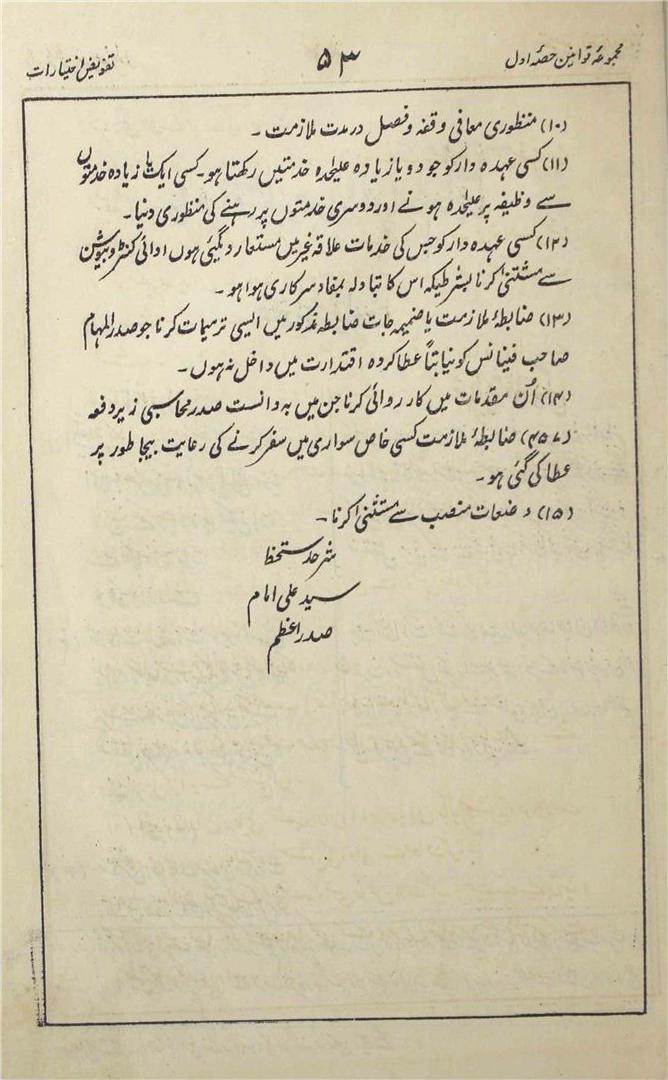 مجموعۂ قوانین حصۂ اول
۵۳
تفویض اختیارات
(۱۰) منظوری معافی وقفہ و فصل در مدت ملازمت ۔
(۱۱) کسی عہدہ دار کو جو دو یا زیادہ علیحدہ خدمتیں رکھتا ہو۔ کسی ایک یا زیادہ خدمتوں
سے وظیفہ پر علیحدہ ہونے اور دوسری خدمتوں پر رہنے کی منظوری دنیا۔
(۱۲) کسی عہدہ دار کو جس کی خدمات علاقہ غیر میں مستعار دیگئی ہوں ادائی کنٹروبیوشن
سے مستثنیٰ کرنا بشرطیکہ اس کا تبادلہ بمفاد سرکاری ہوا ہو ۔
(۱۳) ضابطۂ ملازمت یا ضمیمہ جات ضابطہ مذکور میں ایسی ترمیمات کرنا جو صدر المہام
صاحب فینانس کو نیابتاً عطا کردہ اقتدارات میں داخل نہ ہوں ۔
(۱۴) اُن مقدمات میں کارروائی کرنا جن میں بہ دانست صدر محاسبی زیر دفعہ
(۴۵۷) ضابطۂ ملازمت کسی خاص سواری میں سفر کرنے کی رعایت بیجا طور پر
عطا کی گئی ہو ۔
(۱۵) وضعات منصب سے مستثنیٰ کرنا ۔
شرحد ستخط
سید علی امام
صدر اعظم